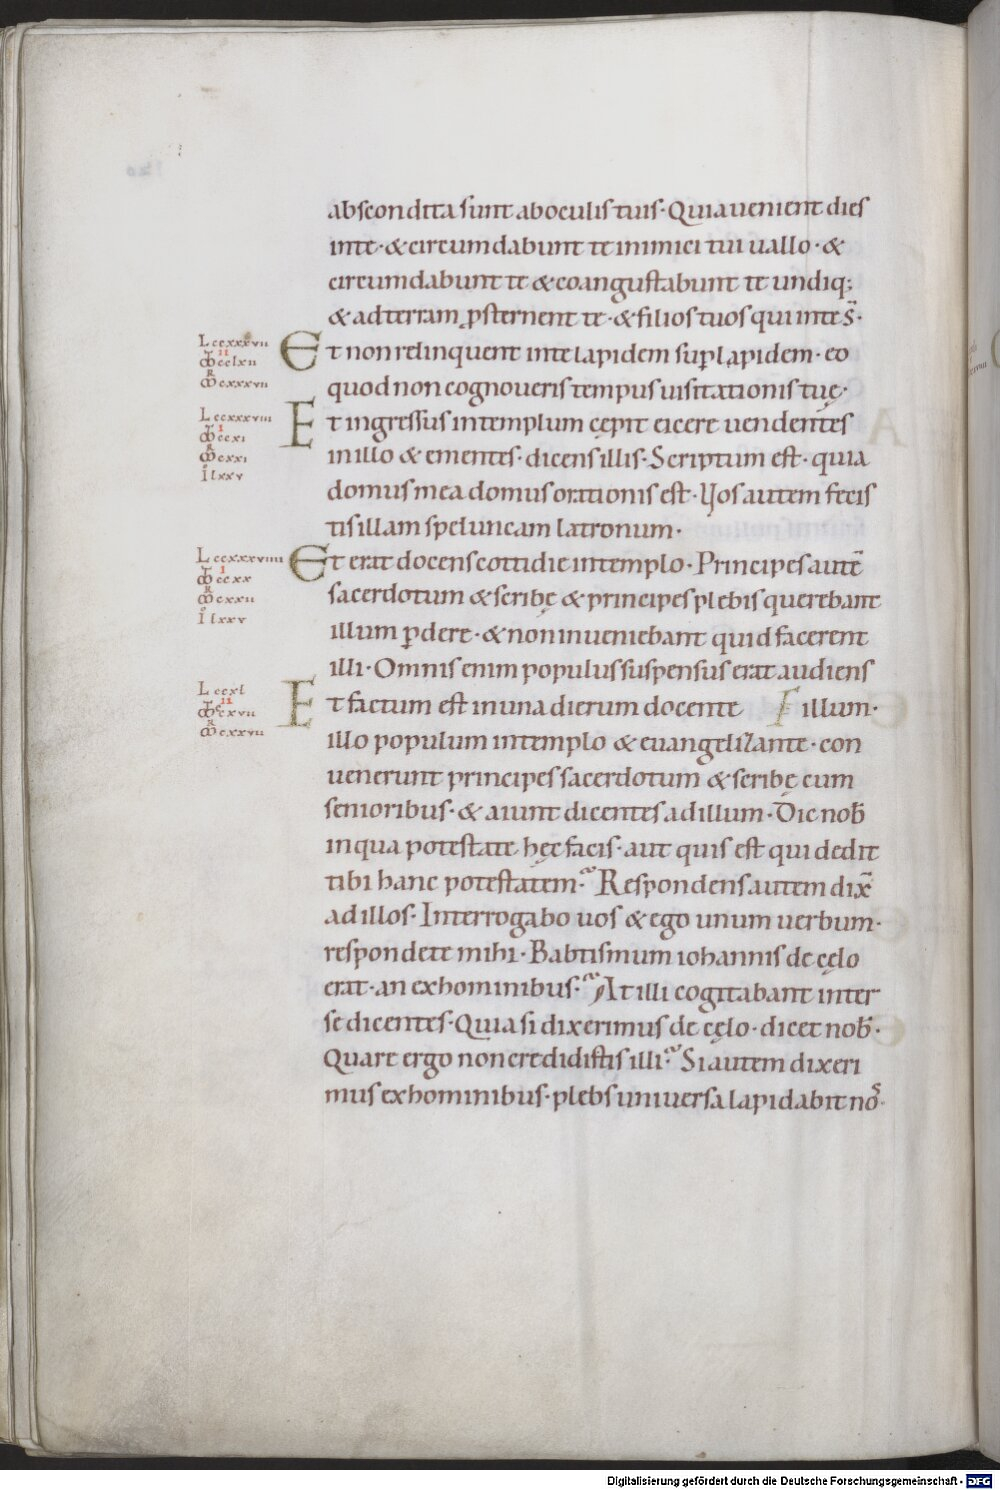 abscondita sunt ab oculis tuis · Quia uenient dies
in te · & circumdabunt te inimici tui uallo · &
circumdabunt te & coangustabunt te undiq;
& ad terram ꝓsternent te · & filios tuos qui in te s̄ ·
Lccxxxvii
Et non relinquent in te lapidem suꝑ lapidem · eo
quod non cognoueris tempus uisitationis tuę ·
Lccxxxviii
Et ingressus in templum cępit eicere uendentes
in illo & ementes · dicens illis · Scriptum est · quia
domus mea domus orationis est · Vos autem fecis
tis illam speluncam latronum ·
Lccxxxviiii
Et erat docens cottidie in templo · Principes autē
sacerdotum & scribę & principes plebis querebant
illum ꝑdere · & non inueniebant quid facerent
illi · Omnis enim populus suspensus erat audiens
Lccxl
Et factum est in una dierum docente illum ·
illo populum in templo & euangelizante · con
uenerunt principes sacerdotum & scribę cum
senioribus · & aiunt dicentes ad illum · Dic nob̄
in qua potestate hęc facis · aut quis est qui dedit
tibi hanc potestatem · Respondens autem dix̄
ad illos · Interrogabo uos & ego unum uerbum ·
respondete mihi · Babtismum iohannis de cęlo
erat · an ex hominibus · At illi cogitabant inter
se dicentes · Quia si dixerimus de cęlo · dicet nob̄ ·
Quare ergo non credidistis illi · Si autem dixeri
mus ex hominibus · plebs uniuersa lapidabit noˢ ·
Digitalisierung gefördert durch die Deutsche Forschungsgemeinschaft - DFG